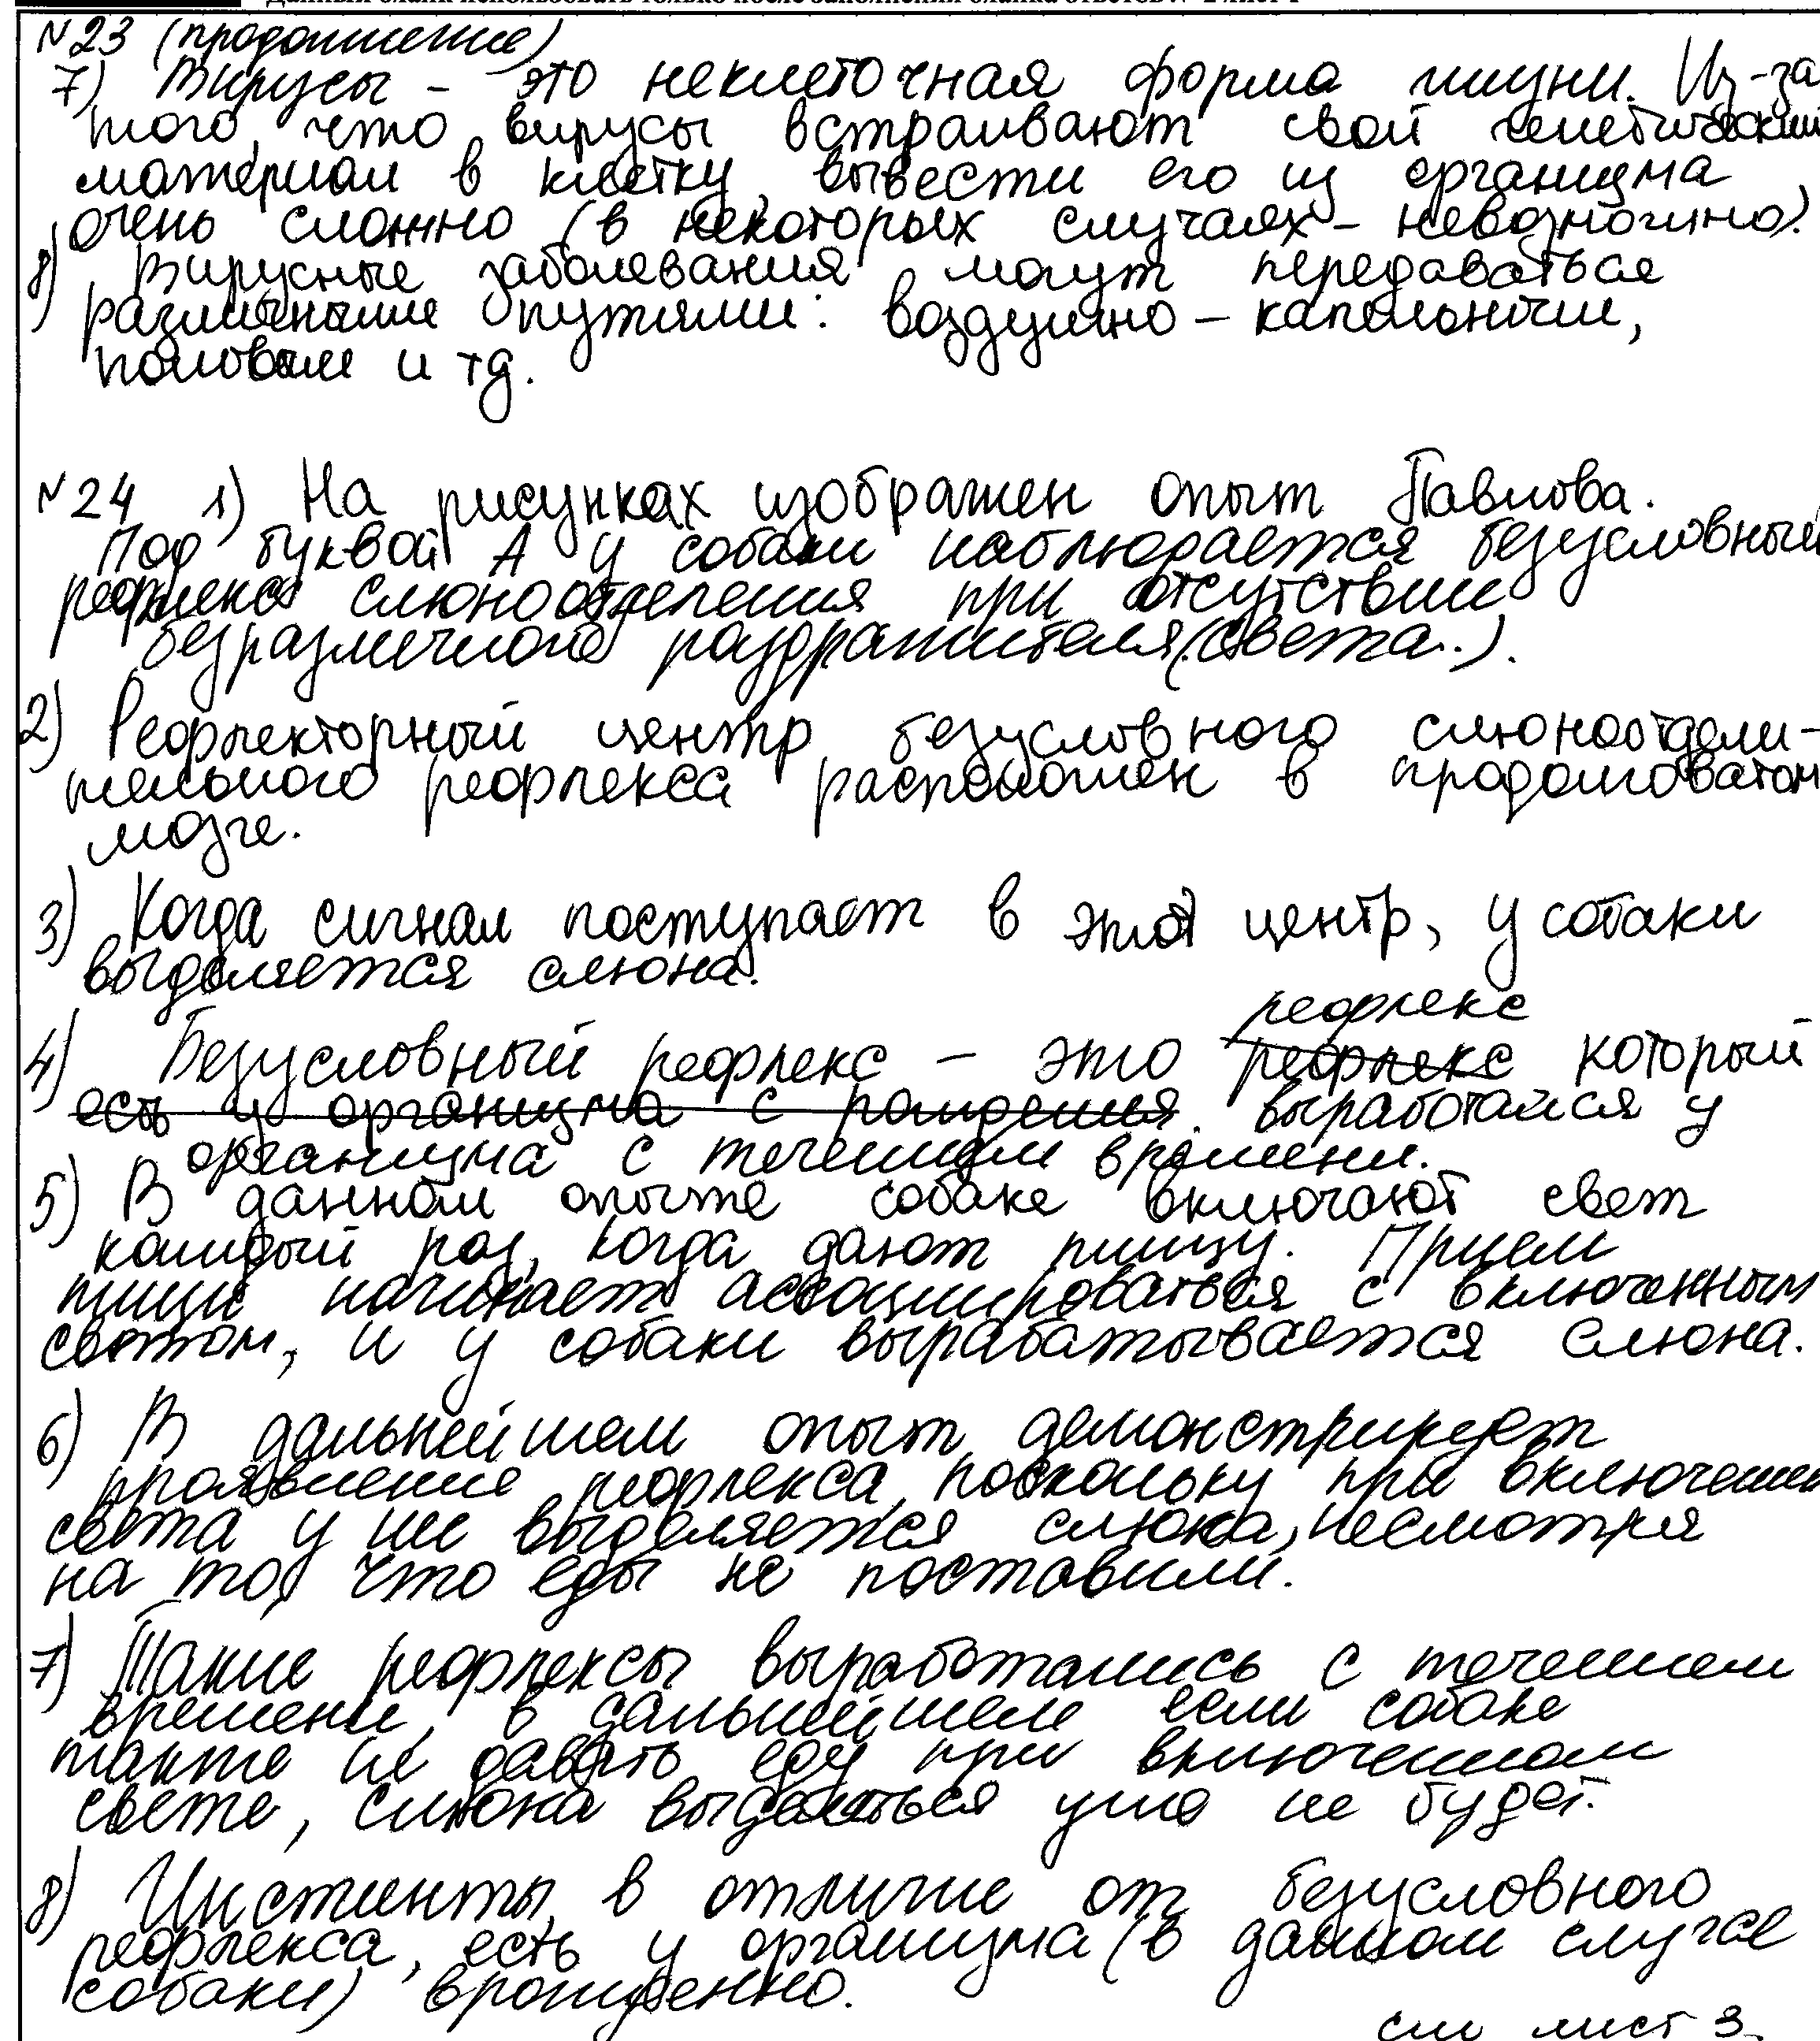 Данный бланк использовать только после заполнения бланка ответов № 2 лист 1
№23 (продолжение)
7) Вирусы - это неклеточная форма жизни. Из-за
того, что вирусы встраивают свой генетический
материал в клетку, вывести его из организма
очень сложно (в некоторых случаях - невозможно).
8) Вирусные заболевания могут передаваться
различными путями: воздушно - капельным,
половым и тд.
№24 1) На рисунках изображен опыт Павлова.
Под буквой А у собаки наблюдается безусловный
рефлекс слюноотделения при отсутствии
безразличного раздражителя (света).
2) Рефлекторный центр безусловного слюноотдели-
тельного рефлекса расположен в продолговатом
мозге.
3) Когда сигнал поступает в этот центр, у собаки
выделяется слюна.
рефлекс
4) Безусловный рефлекс - это рефлекс который
есть у организма с рождения. выработался у
организма с течением времени.
5) В данном опыте собаке включают свет
каждый раз, когда дают пищу. Прием
пищи начинает ассоциироваться с включенным
светом, и у собаки вырабатывается слюна.
6) В дальнейшем опыт демонстрирует
проявление рефлекса, поскольку при включении
света у неё выделяется слюна, несмотря
на то, что еды не поставили.
7) Такие рефлексы выработались с течением
времени, в дальнейшем если собаке
также не давать еду при включенном
свете, слюна выделяться уже не будет.
8) Инстинкты, в отличие от безусловного
рефлекса, есть у организма (в данном случае
собаки) врожденно.
см лист 3.